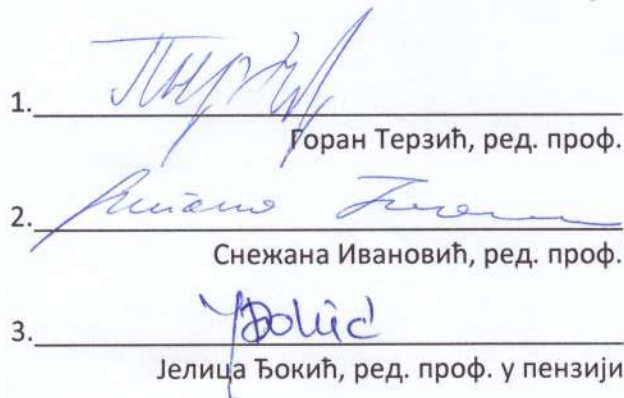 1.
Горан Терзић, ред. проф.
2.
Снежана Ивановић, ред. проф.
3.
Јелица Ђокић, ред. проф. у пензији